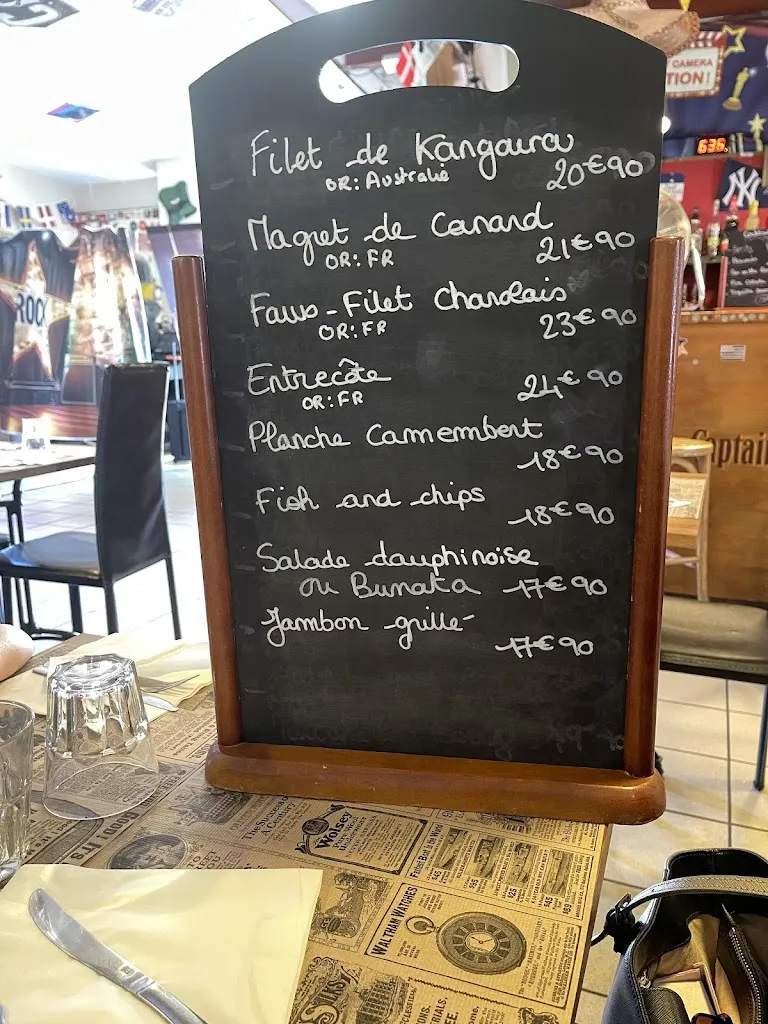 CAMERA
TION!
636
NY
ROCK
Filet de Kangourou
OR: Australie 20€90
Magret de Canard
OR: FR 21€90
Faux-Filet Charolais
OR: FR 23€90
Entrecôte
OR: FR 24€90
Planche Camembert
18€90
Fish and chips
18€90
Salade dauphinoise
ou Burrata 17€90
Jambon grillé
17€90
Captain
GOOD
Wolsey
WALTHAM WATCHES